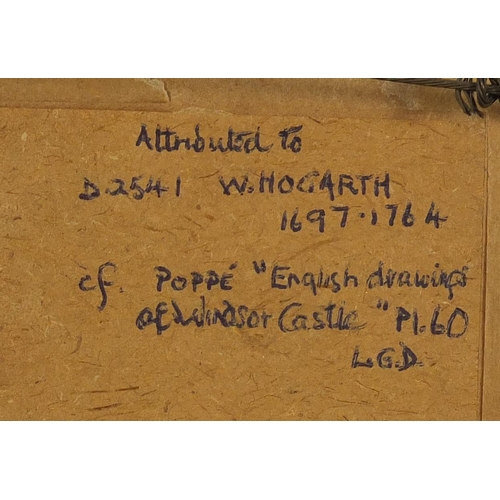 Attributed to
D.2541 W.HOGARTH
1697.1764
cf. POPPÉ "English drawings
of Windsor Castle" Pl.60
L.G.D.